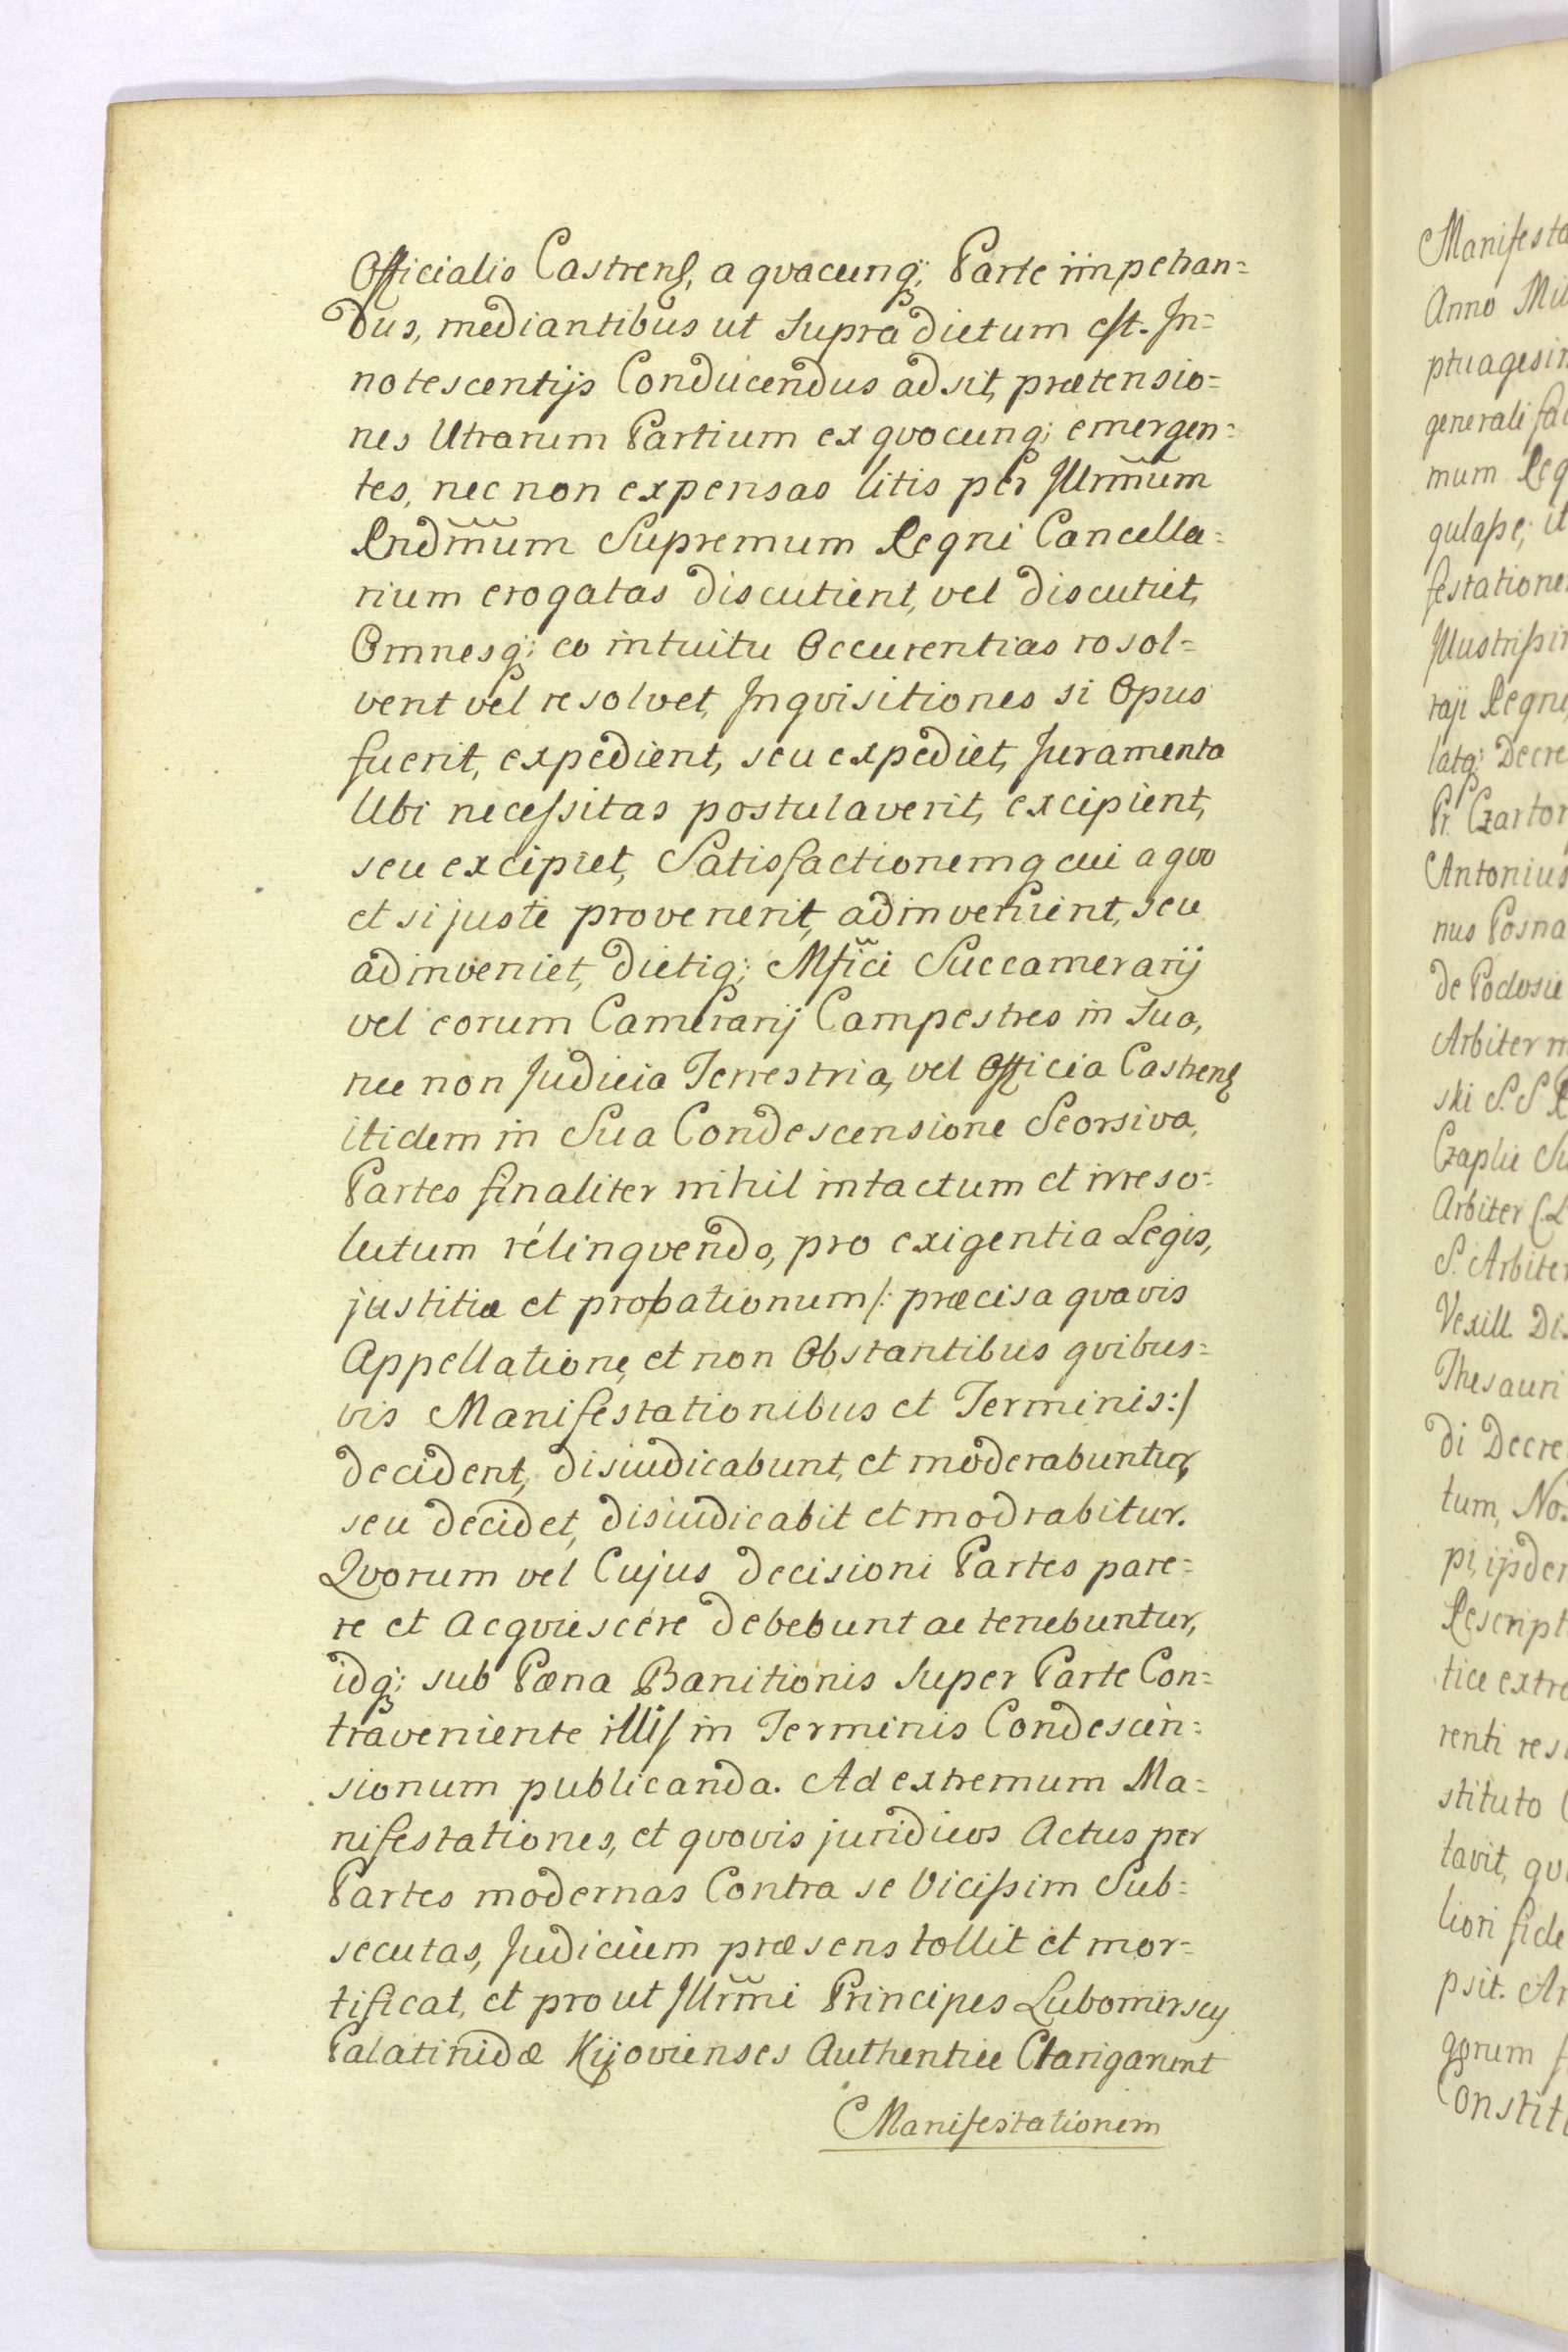 Officialis Castrens, a qvacunq; Parte impetran=
dus, mediantibus ut supra dictum est. In=
notescentijs Conducendus adsit, prætensio=
nes Utrarum Partium ex qvocunq; emergen=
tes, nec non expensas litis per Jllrmum
Rndmum Supremum Regni Cancella=
rium erogatas discutient, vel discutiet,
Omnesq; eo intuitu Occurentias rosol=
vent vel resolvet, Inqvisitiones si Opus
fuerit, expedient, seu expediet, Juramenta
Ubi necessitas postulaverit, excipient,
seu excipiet, Satisfactionemq cui a qvo
et si juste provenerit, adinvenient, seu
adinveniet, dictiq; Mfici Succamerarij
vel eorum Camerarij Campestres in Sua,
nec non Judicia Terrestria, vel Officia Castrens
itidem in Sua Condescensione Seorsiva,
Partes finaliter nihil intactum et irreso=
lutum relinqvendo, pro exigentia Legis,
justitiæ et probationum /: præcisa qvavis
Appellatione, et non Obstantibus qvibus=
vis Manifestationibus et Terminis :/
decident, disiudicabunt, et moderabuntur,
seu decidet, disiudicabit et modrabitur.
Qvorum vel Cujus decisioni Partes pare=
re et Acqviescere debebunt ac tenebuntur,
idq; sub Pæna Banitionis super Parte Con=
traveniente illis in Terminis Condescen=
sionum publicanda. Ad extremum Ma=
nifestationes, et qvovis juridicos Actus per
Partes modernas Contra se Vicissim Sub=
secutas, Judicium præsens tollit et mor=
tificat, et prout Jllrmi Principes Lubomirscy
Palatinidæ Kijovienses Authentice Clarigarunt
Manifestationem
Manifesta
Anno Mil
ptuagesim
generali
mum Reg
gulasse; it
festatione
Jllustrissim
raji Regni
latq; Decre
Pr. Czartor
Antonius
nus Posna
de Podosie
Arbiter
ski S. S
Czaplic Su
Arbiter
S. Arbiter
Vexill. Dis
Thesauri
di Decre
tum, No
pi, ijsdem
Rescript
tice extra
renti res
stituto
tavit, qv
liori fide
psit. Ar
gorum
Constit